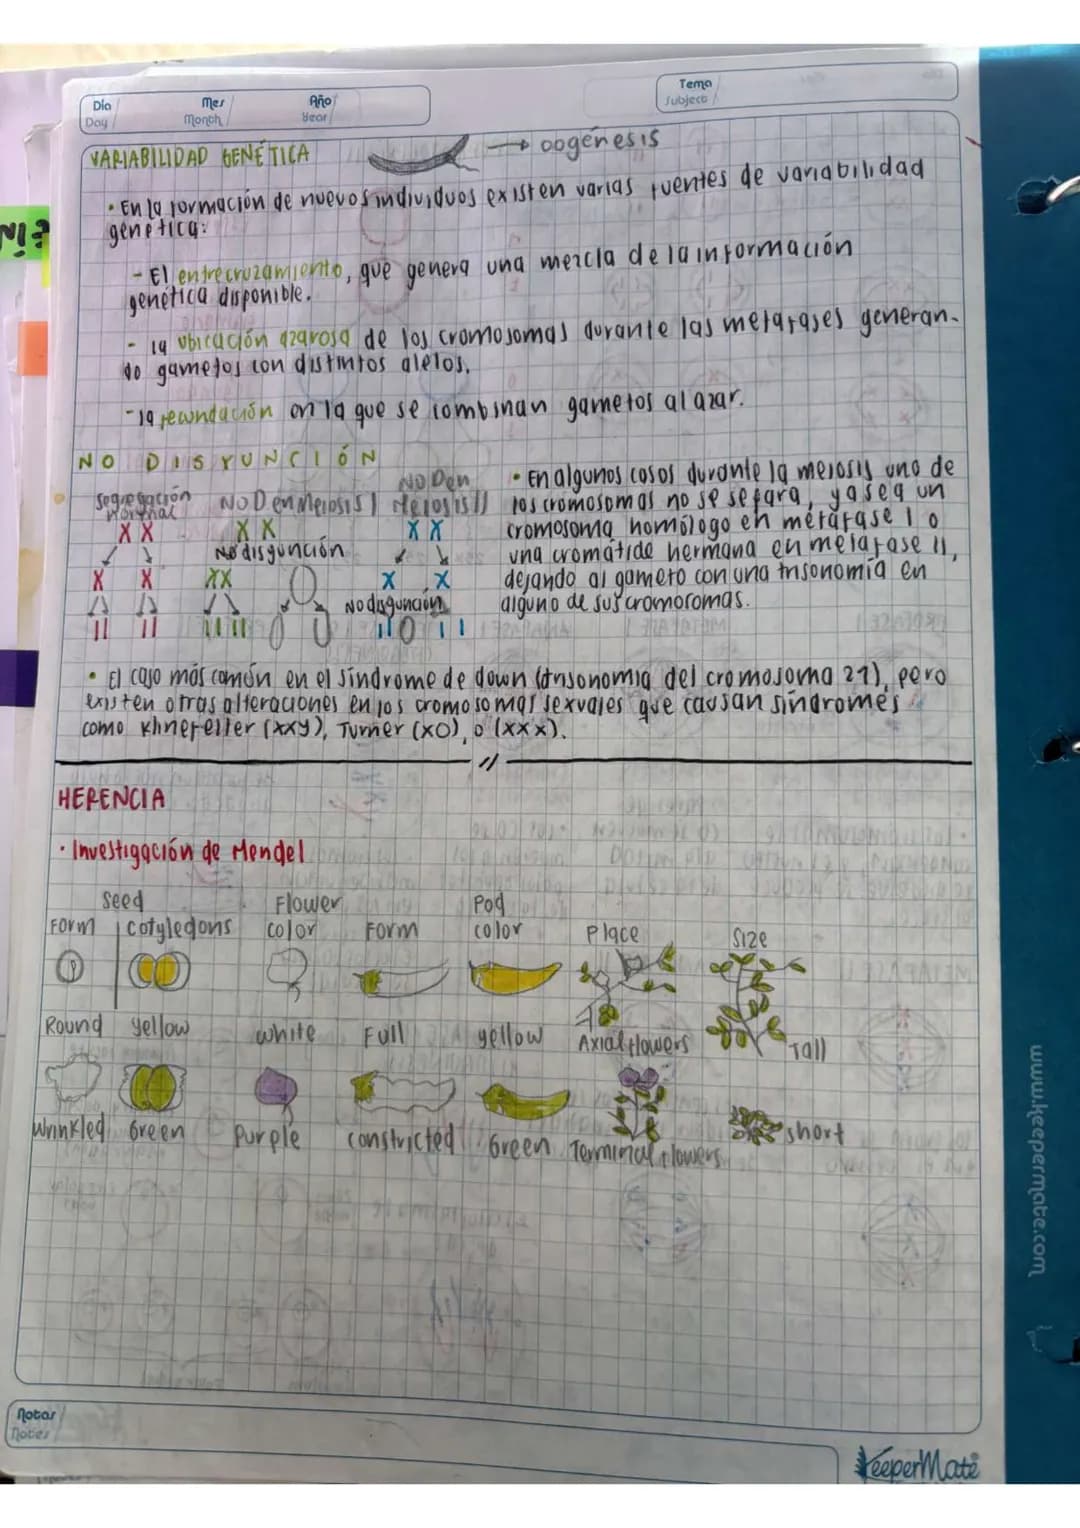 Día
Day
Mes
Month
Año
Year
Tema
Subject
VARIABILIDAD GENÉTICA
→ oogénesis
• En la formación de nuevos individuos existen varias fuentes de variabilidad
genética:
- El entrecruzamiento, que genera una mezcla de la información
genética disponible.
- la ubicación azarosa de los cromosomas durante las metafases generan-
do gametos con distintos alelos.
- la fecundación en la que se combinan gametos al azar.
NO DISYUNCIÓN
segregación
normal
NO D en Meiosis I
NO D en
Meiosis II
X X
X X
X X
No disyunción
X X
XX
X X
No disyunción
• En algunos casos durante la meiosis uno de
los cromosomas no se separa, ya sea un
cromosoma homólogo en metafase I o
una cromátide hermana en metafase II,
dejando al gameto con una trisonomía en
alguno de sus cromosomas.
• El caso más común en el síndrome de down (trisonomia del cromosoma 21), pero
existen otras alteraciones en los cromosomas sexuales que causan síndromes
como Klinefelter (xxy), Turner (XO), o (xxx).
HERENCIA
• Investigación de Mendel
Seed
Flower
Pod
Form
cotyledons
color
Form
color
Place
Size
Round
yellow
white
Full
yellow
Axial flowers
Tall
Wrinkled
Green
Purple
constricted
Green
Terminal flowers
short
Notas
Notes
KeeperMate
www.keepermate.com